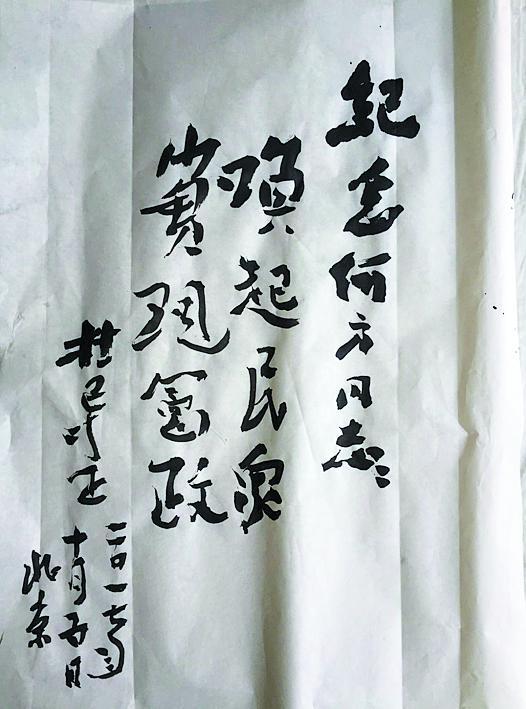 紀念何方同志:
喚起民衆
實現憲政
杜导正
二〇一七年
十月五日
北京